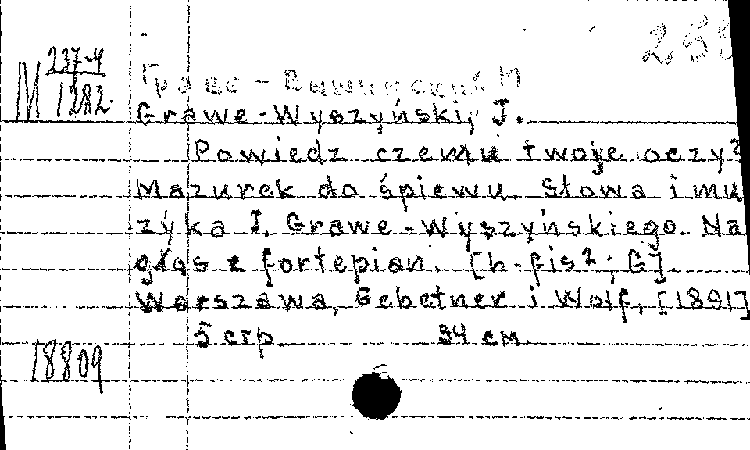 M 237-4
1282.
Граве-Вышинский
Grawe-Wyszyński, J.
Powiedz czemu twoje oczy?
Mazurek do śpiewu. Słowa i mu
zyka J. Grawe-Wyszyńskiego. Na
głos z fortepian. [h-fis²; G].
Warszawa, Gebetner i Wolf, [1891]
5 стр. 34 см
18809